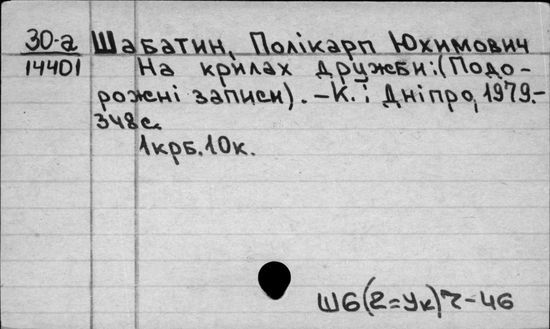 30-а Шабатин, Полікарп Юхимович
14401 На крилах дружби: (Подо-
рожні записи). – К.: Дніпро, 1979.-
348 с.
1крб. 10к.
Ш6(2=Ук)7-46